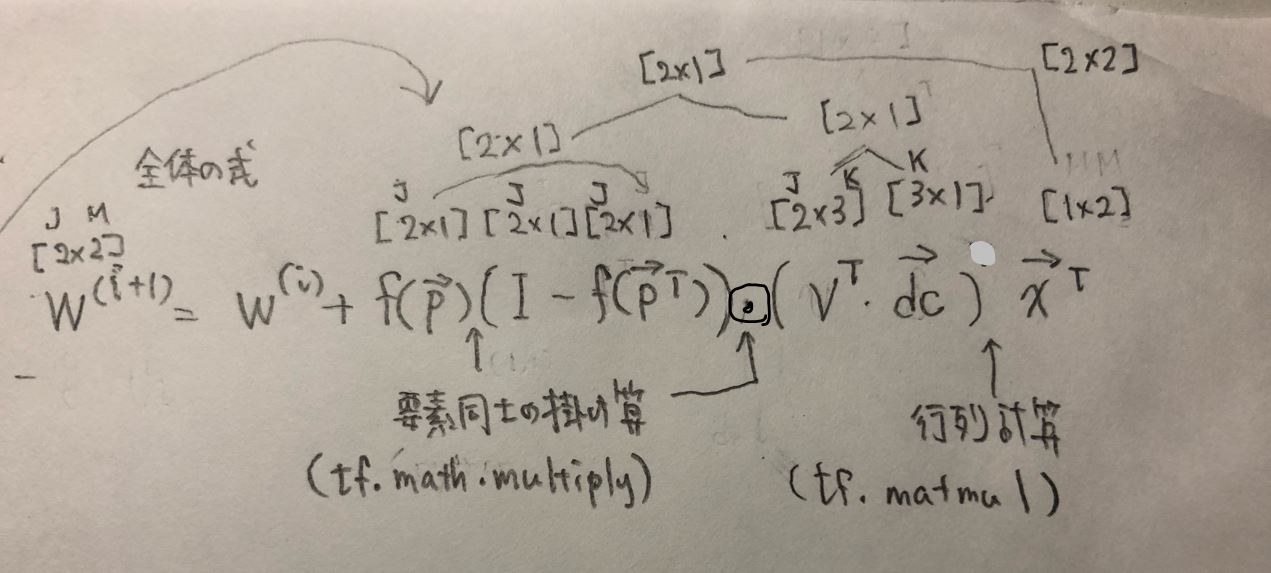 [2×1] [2×2]
[2×1] [2×1]
全体の式
J M J J J J K K
[2×2] [2×1] [2×1] [2×1] [2×3] [3×1] [1×2]
W^(i+1) = W^(i) + f(p⃗)(I − f(p⃗^T)) ⊡ (V^T · dc⃗) x⃗^T
要素同士の掛け算 行列計算
(tf.math.multiply) (tf.matmul)